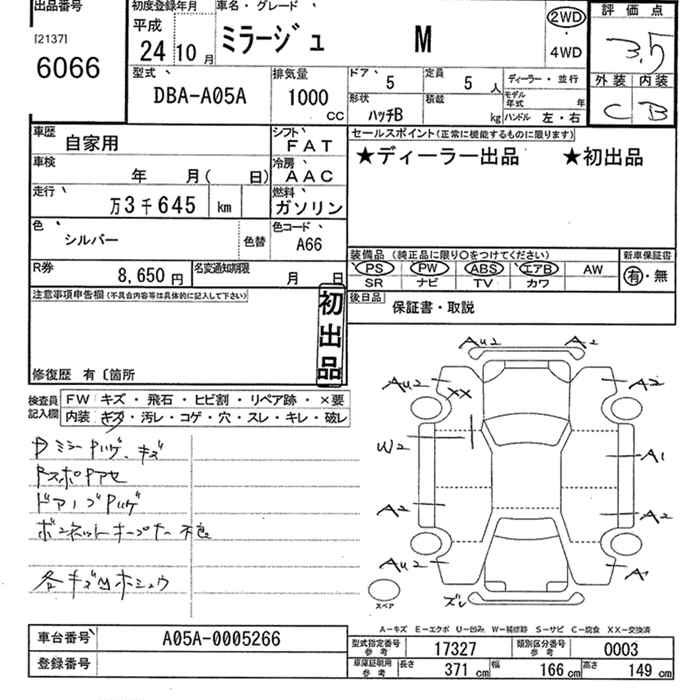 出品番号
[2137]
6066
初度登録年月
平成
24年10月
車名・グレード
ミラージュ M
2WD
・
4WD
評価点
3.5
外装 内装
C B
型式
DBA-A05A
排気量
1000
CC
ドア
5
定員
5 人
ディーラー・並行
形状
ハッチB
積載
kg
モデル年式 年
ハンドル 左・右
車歴
自家用
シフト
FAT
車検
年 月( 日)
冷房
AAC
走行
万3千645 km
燃料
ガソリン
色
シルバー
色替
色コード
A66
R券
8,650円
名変通知期限
月 日
セールスポイント(正常に機能するものに限ります)
★ディーラー出品 ★初出品
装備品 (純正品に限り○をつけてください)
PS PW ABS エアB AW
SR ナビ TV カワ
新車保証書
有・無
後日品
保証書・取説
注意事項申告欄(不具合内容等は具体的に記入して下さい)
初出品
修復歴 有〔箇所
検査員記入欄
FW キズ・飛石・ヒビ割・リペア跡・×要
内装 キズ・汚レ・コゲ・穴・スレ・キレ・破レ
ドアノブPハゲ
各キズ凹ホシュウ
AU2 A2
AU2 A2
XX
W2 A1
A2 A2
AU2 A1
ズレ
スペア
A-キズ E-エクボ U-凹み W-補修跡 S-サビ C-腐食 XX-交換済
車台番号
A05A-0005266
登録番号
型式指定番号
参考
17327
類別区分番号
参考
0003
車庫証明用
参考
長さ 371 cm 幅 166 cm 高さ 149 cm